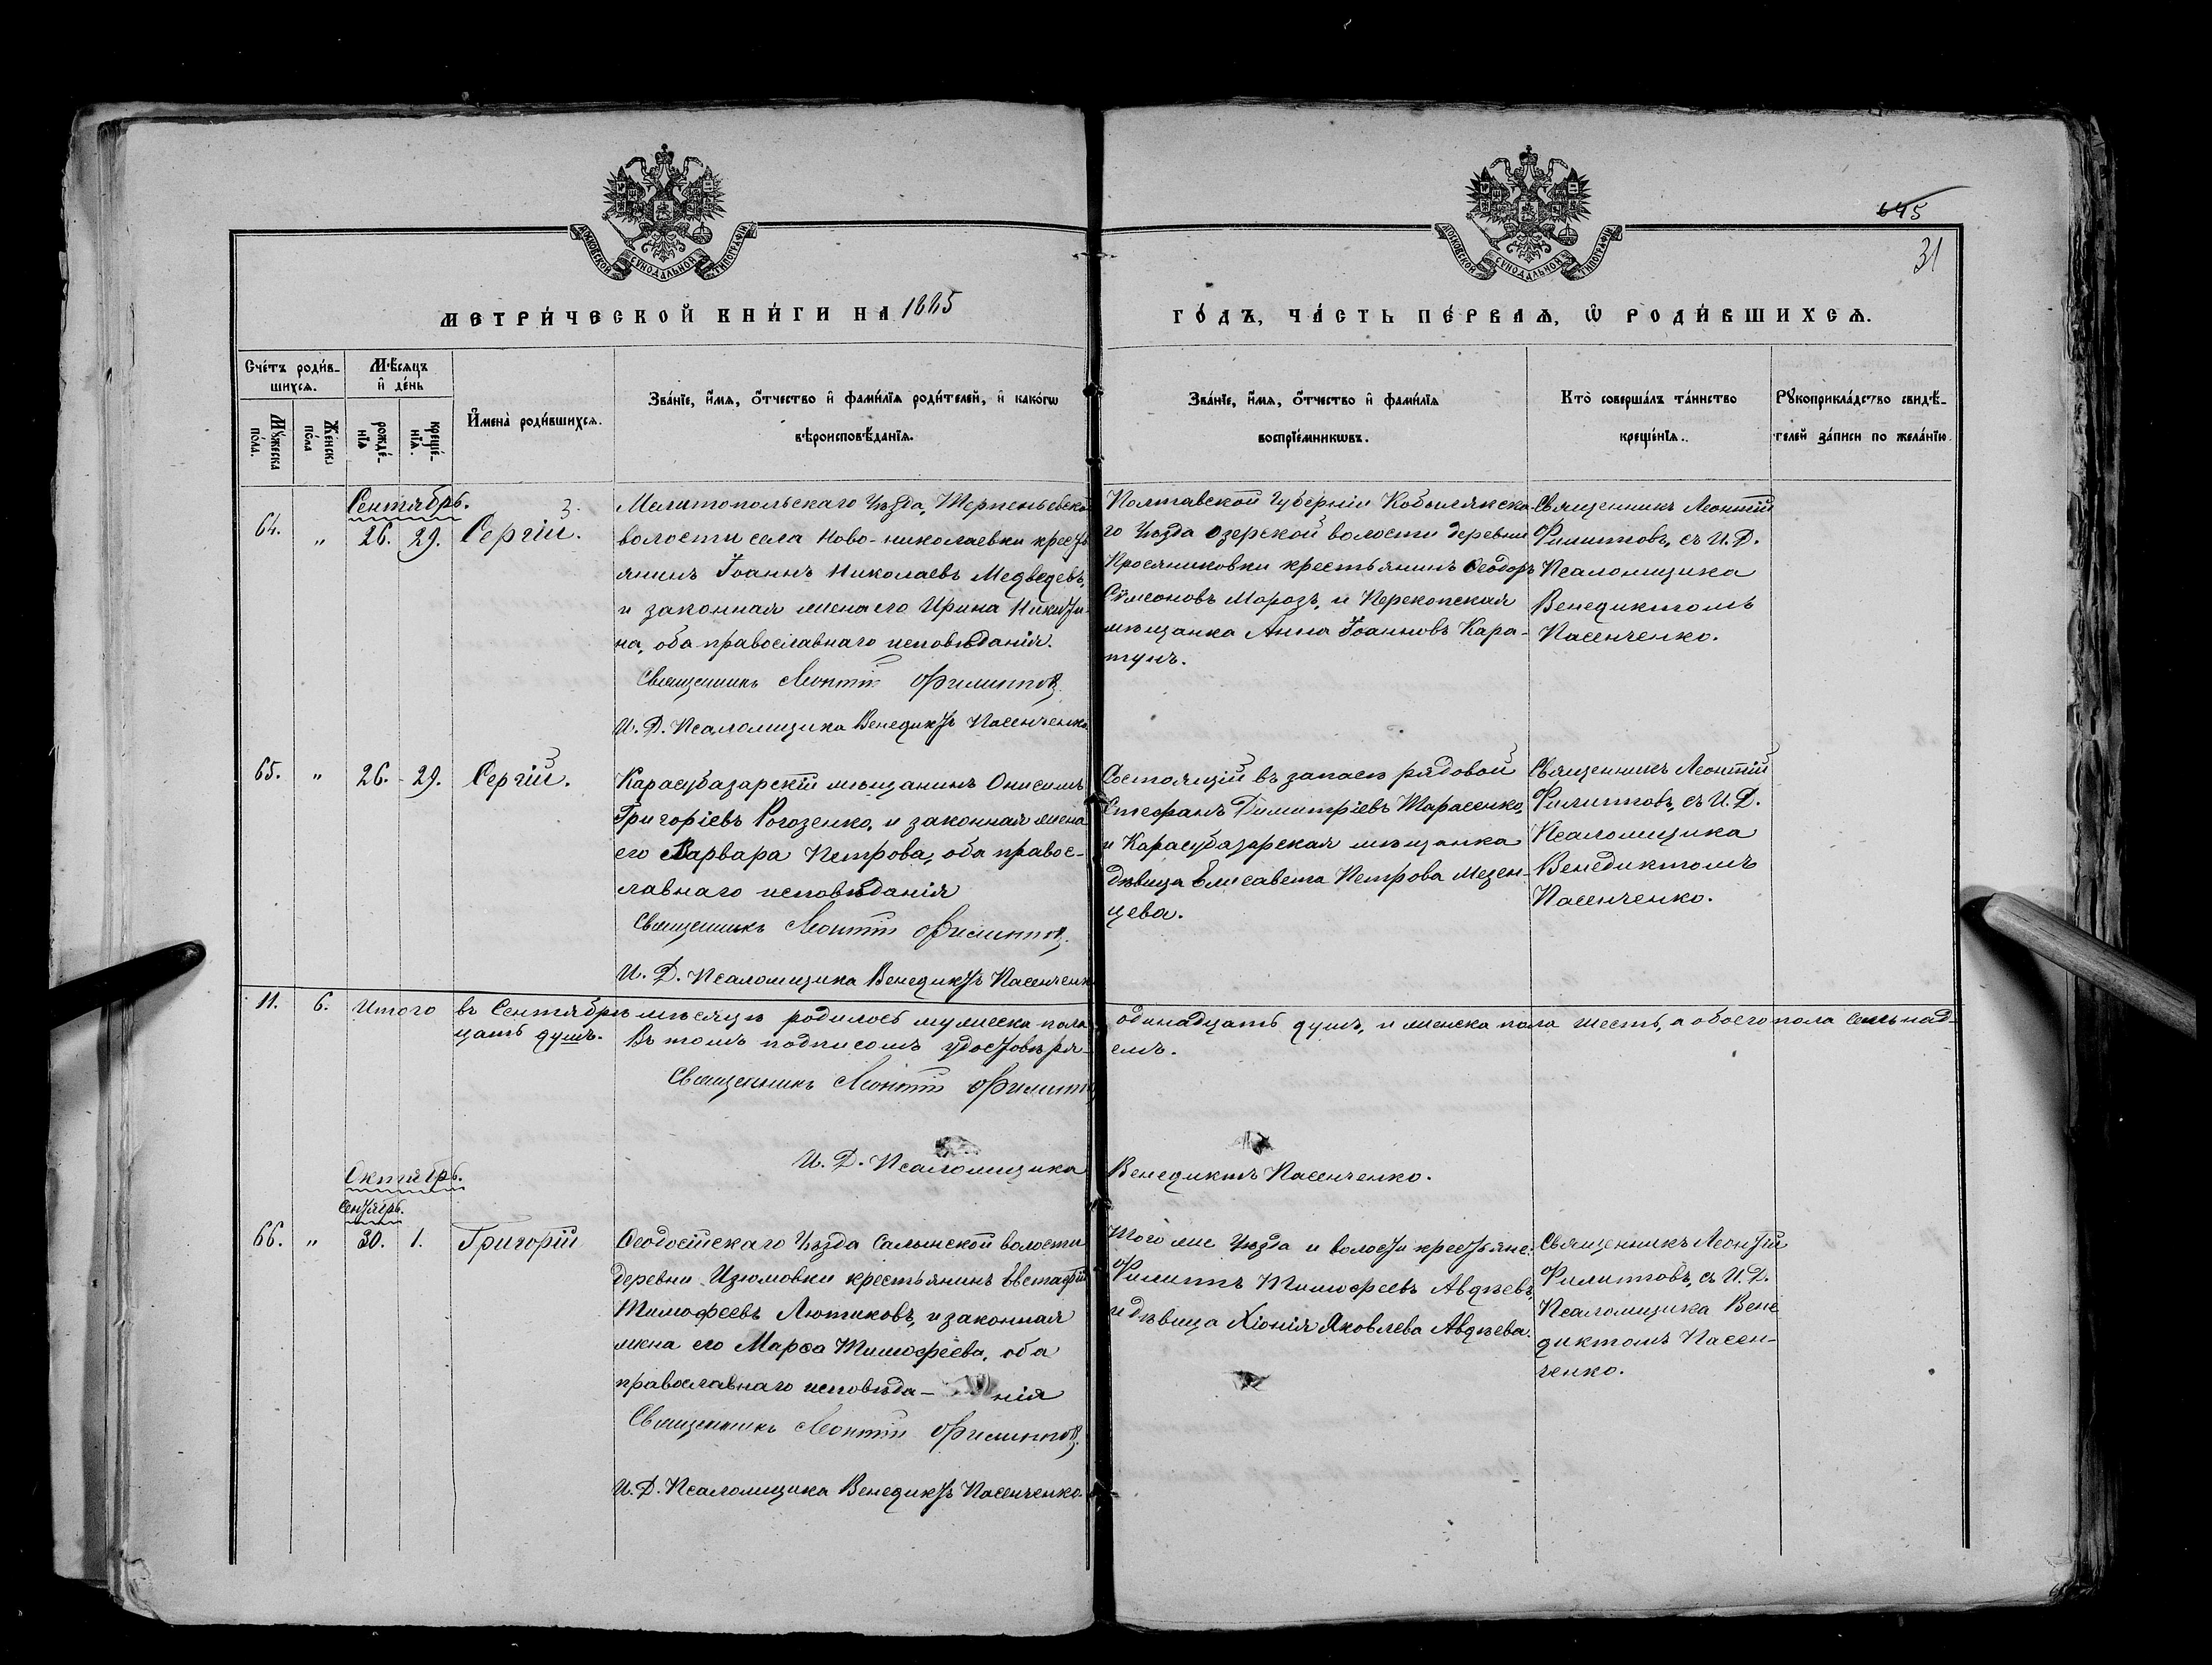 645
31
МОСКОВСКОЙ СѴНОДАЛЬНОЙ ТИПОГРАФІИ
МОСКОВСКОЙ СѴНОДАЛЬНОЙ ТИПОГРАФІИ
МЕТРИ́ЧЕСКОЙ КНИ́ГИ НА 1885
ГО́ДЪ, ЧА́СТЬ ПЕ́РВАЯ, Ѡ РОДИ́ВШИХСЯ.
Сче́тъ роди́в-
шихся.
Мꙋ́жеска
по́ла.
Же́нска
по́ла
Мѣ́сяцъ
и҆ де́нь
рожде́-
нїя
креще́-
нїя.
И҆мена̀ роди́вшихся.
Зва́нїе, и҆́мя, ѻ҆́тчество и҆ фами́лїя роди́телей, и҆ како́гѡ
вѣроисповѣ́данїя.
Зва́нїе, и҆́мя, ѻ҆́тчество и҆ фами́лїя
воспрїе́мникѡвъ.
Кто̀ соверша́лъ та́инство
креще́нїя.
Рꙋкоприкла́дство свидѣ́-
телей за́писи по жела́нїю.
Сентябрь.
64. " 26. 29. Сергій.
3.
Мелитопольскаго Уѣзда, Терпеньевской
волости села Ново-николаевки кресть
янинъ Іоаннъ Николаевъ Медведевъ,
и законная жена его Ирина Никити-
на, оба православнаго исповѣданія.
Священникъ Леонтій Филиппов
И. Д. Псаломщика Венедиктъ Пасенченко
Полтавской Губерніи Кобылякска-
го Уѣзда Озерской волости деревни
Просяниковки крестьянинъ Ѳеодоръ
Сѵмеоновъ Морозъ, и Перекопская
мѣщанка Анна Іоанновъ Кара-
тунъ.
Священникъ Леонтій
Филиповъ, съ И. Д.
Псаломщика
Венедиктомъ
Пасенченко.
65. " 26. 29. Сергій.
Карасубазарскій мѣщанинъ Онисимъ
Григоріевъ Рогозенко, и законная жена
его Варвара Петрова, оба правос-
лавнаго исповѣданія
Священникъ Леонтій Филиппов.
И. Д. Псаломщика Венедиктъ Пасенченк
Состоящій въ запасѣ рядовой
Стефанъ Димитріевъ Тарасенко,
и Карасубазарская мѣщанка
дѣвица Елисавета Петрова Мезен-
цева.
Священникъ Леонтій
Филиповъ, съ И. Д.
Псаломщика
Венедиктомъ
Пасенченко.
11. 6. Итого въ Сентябрѣ мѣсяцѣ родилось мужеска пола одинадцать душъ, и женска пола шесть, а обоего пола семьнад-
цать душъ. Въ томъ подписомъ удостовѣря-
емъ.
Священникъ Леонтій Филиппо
И. Д. Псаломщика Венедиктъ Пасенченко.
Октябрь.
Сентябрь.
66. " 30. 1. Григорій
Ѳеодосійскаго Уѣзда Салынской волости
деревни Изюмовки крестьянинъ Евстафій
Тимофеевъ Лютиковъ, и законная
жена его Марѳа Тимофеева, оба
православнаго исповѣда- нія
Священникъ Леонтій Филиппов.
И. Д. Псаломщика Венедиктъ Пасенченко.
Того же Уѣзда и волости крестьяне:
Филиппъ Тимофеевъ Авдѣевъ,
и дѣвица Хіонія Яковлева Авдѣева.
Священникъ Леонтій
Филиповъ, съ И. Д.
Псаломщика Вене
диктомъ Пасен-
ченко.